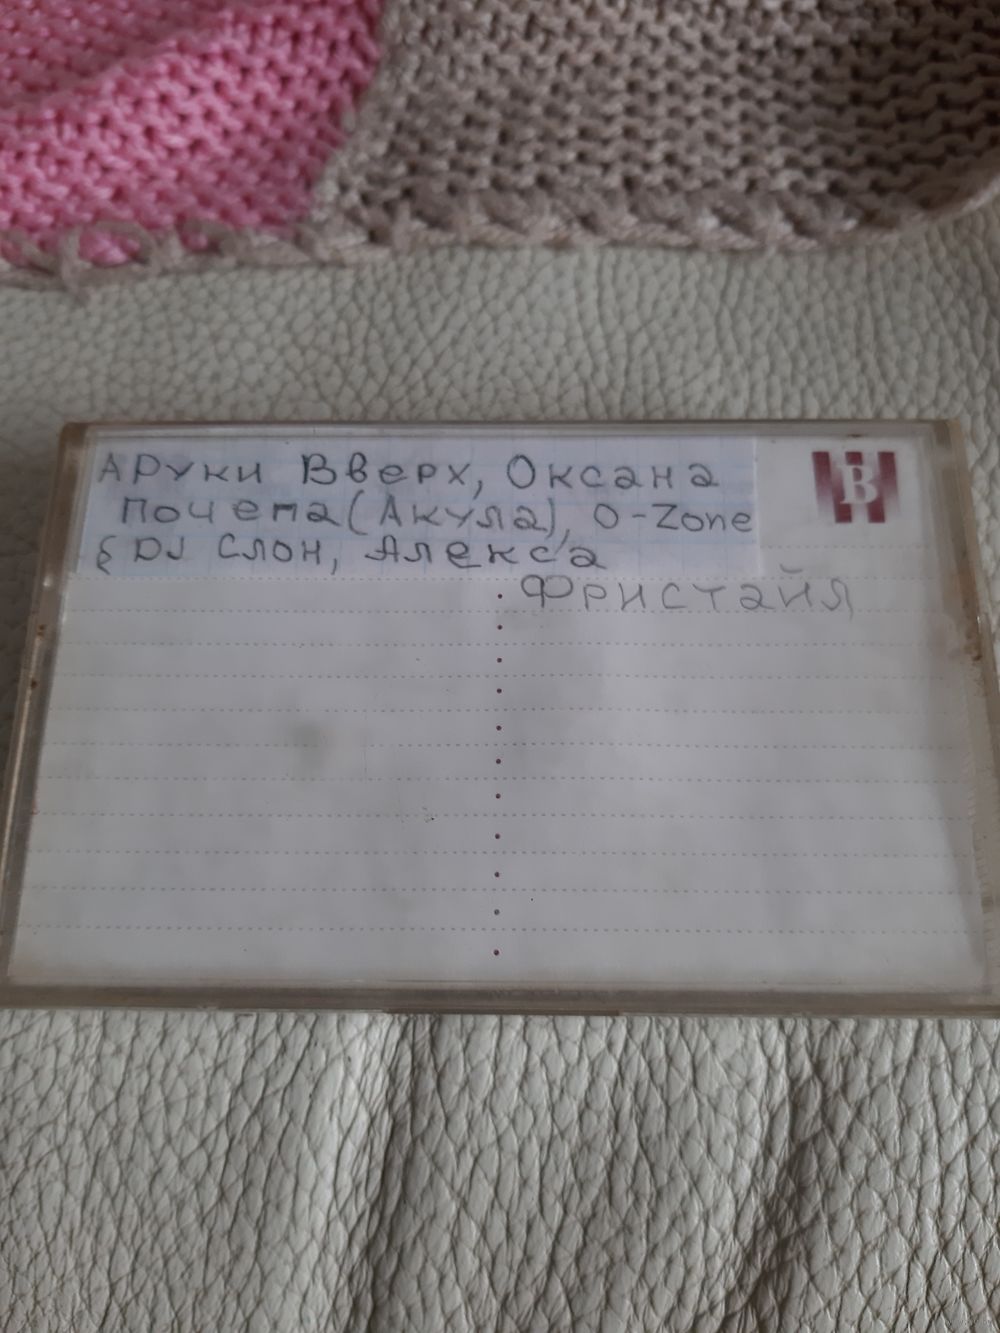 А Руки Вверх, Оксана
Почепа (Акула), O-Zone
& DJ Слон, Алекса
Фристайл
B